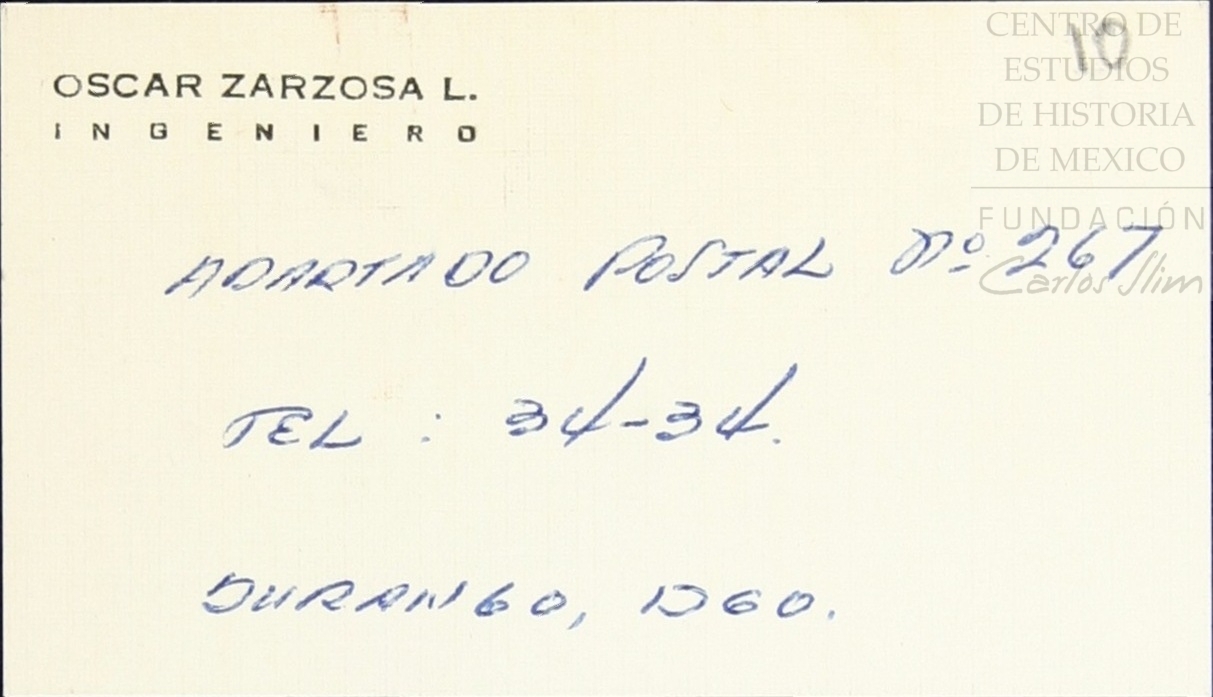 OSCAR ZARZOSA L.
INGENIERO
10
CENTRO DE
ESTUDIOS
DE HISTORIA
DE MEXICO
FUNDACIÓN
Carlos Slim
APARTADO POSTAL Nº 267
TEL : 34-34.
DURANGO, DGO.